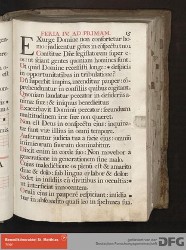 FERIA IV. AD PRIMAM. 15
Exurge Domine non confortetur ho
mo: iudicentur gentes in conspectu tuo.
Constitue Dñe legislatorem super e
os: ut sciant gentes quoniam homines sunt.
Ut quid Domine recessisti longe: despicis
in opportunitatibus in tribulatione?
Dum superbit impius, incenditur pauper:
prehenduntur in consiliis quibus cogitant.
Quoniam laudatur peccator in desideriis
animæ suæ: et iniquus benedicitur.
Exacerbavit Dominũ peccator: secundum
multitudinem iræ suæ non quæret.
Non est Deus in conspectu eius: inquina
tæ sunt viæ illius in omni tempore.
Auferuntur iudicia tua a facie eius: omnium
inimicorum suorum dominabitur.
Dixit enim in corde suo: Non movebor a
generatione in generationem sine malo.
Cuius maledictione os plenum est et amaritu
dine et dolo: sub lingua eius labor et dolor.
Sedet in insidiis cũ divitibus in occultis:
ut interficiat innocentem.
Oculi eius in pauperem respiciunt: insidia
tur in abscondito quasi leo in spelunca sua.
DFG